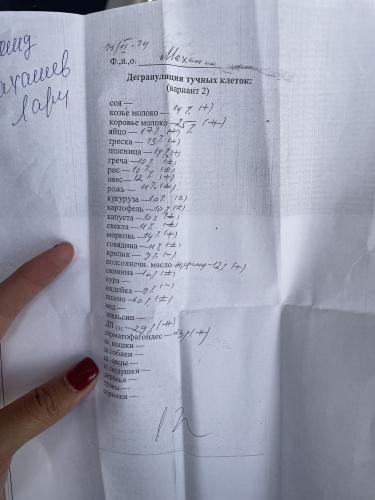 Ф.,и.,о.
Дегрануляция тучных клеток:
(вариант 2)
соя —
козье молоко — 14% (+)
коровье молоко — 25% (++)
яйцо — 17% (+)
треска — 13% (+)
пшеница — 14% (+)
греча — 10% (±)
рис — 10% (±)
овес — 12% (+)
рожь — 11% (±)
кукуруза — 10% (±)
картофель — 10% (±)
капуста — 10% (±)
свекла — 11% (±)
морковь — 14% (+)
говядина — 11% (±)
кролик — 9% (-)
подсолнечн. масло 12% (+)
свинина — 10% (±)
кура —
индейка — 9% (-)
пшено — 10% (±)
мед —
апельсин —
ДП 29% (++)
дерматофагоидес — (++)
ш. кошки —
ш. собаки —
ш. овцы —
п. подушки —
деревья —
травы —
сорняки —